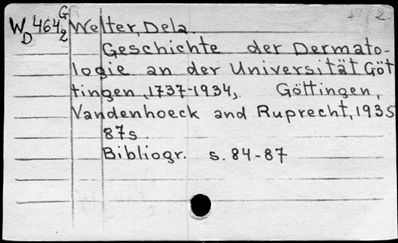 W 464 G Welter, Dela.
D 2 Geschichte der Dermato-
logie an der Universität Göt
tingen, 1737-1934,. Göttingen,
Vandenhoeck and Ruprecht, 1935
87s.
Bibliogr. s. 84-87